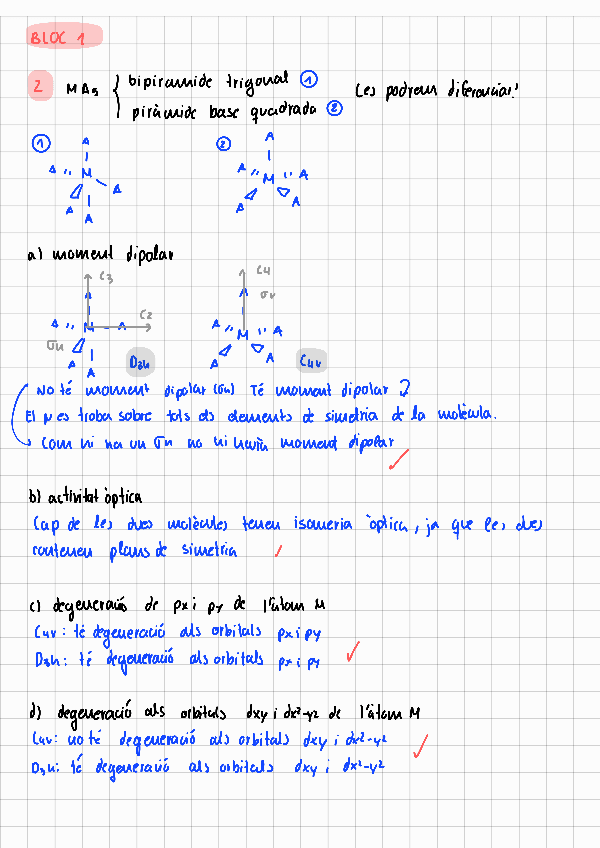 BLOC 1
2 MA5 { bipiramide trigonal ① Les podrem diferenciar?
piràmide base quadrada ②
① A ② A
A M A A M A
A A A A
a) moment dipolar
C3 C4
A σv
C2
A M A A M A
σh A A A A
D3h C4v
No té moment dipolar (σh) Té moment dipolar
El μ es troba sobre tots els elements de simetria de la molècula.
Com hi ha un σh no hi hauria moment dipolar
b) activitat òptica
Cap de les dues molècules tenen isomeria òptica, ja que les dues
contenen plans de simetria
c) degeneració de px i py de l'àtom M
C4v: té degeneració als orbitals px i py
D3h: té degeneració als orbitals px i py
d) degeneració als orbitals dxy i dx²-y² de l'àtom M
C4v: no té degeneració als orbitals dxy i dx²-y²
D3h: té degeneració als orbitals dxy i dx²-y²